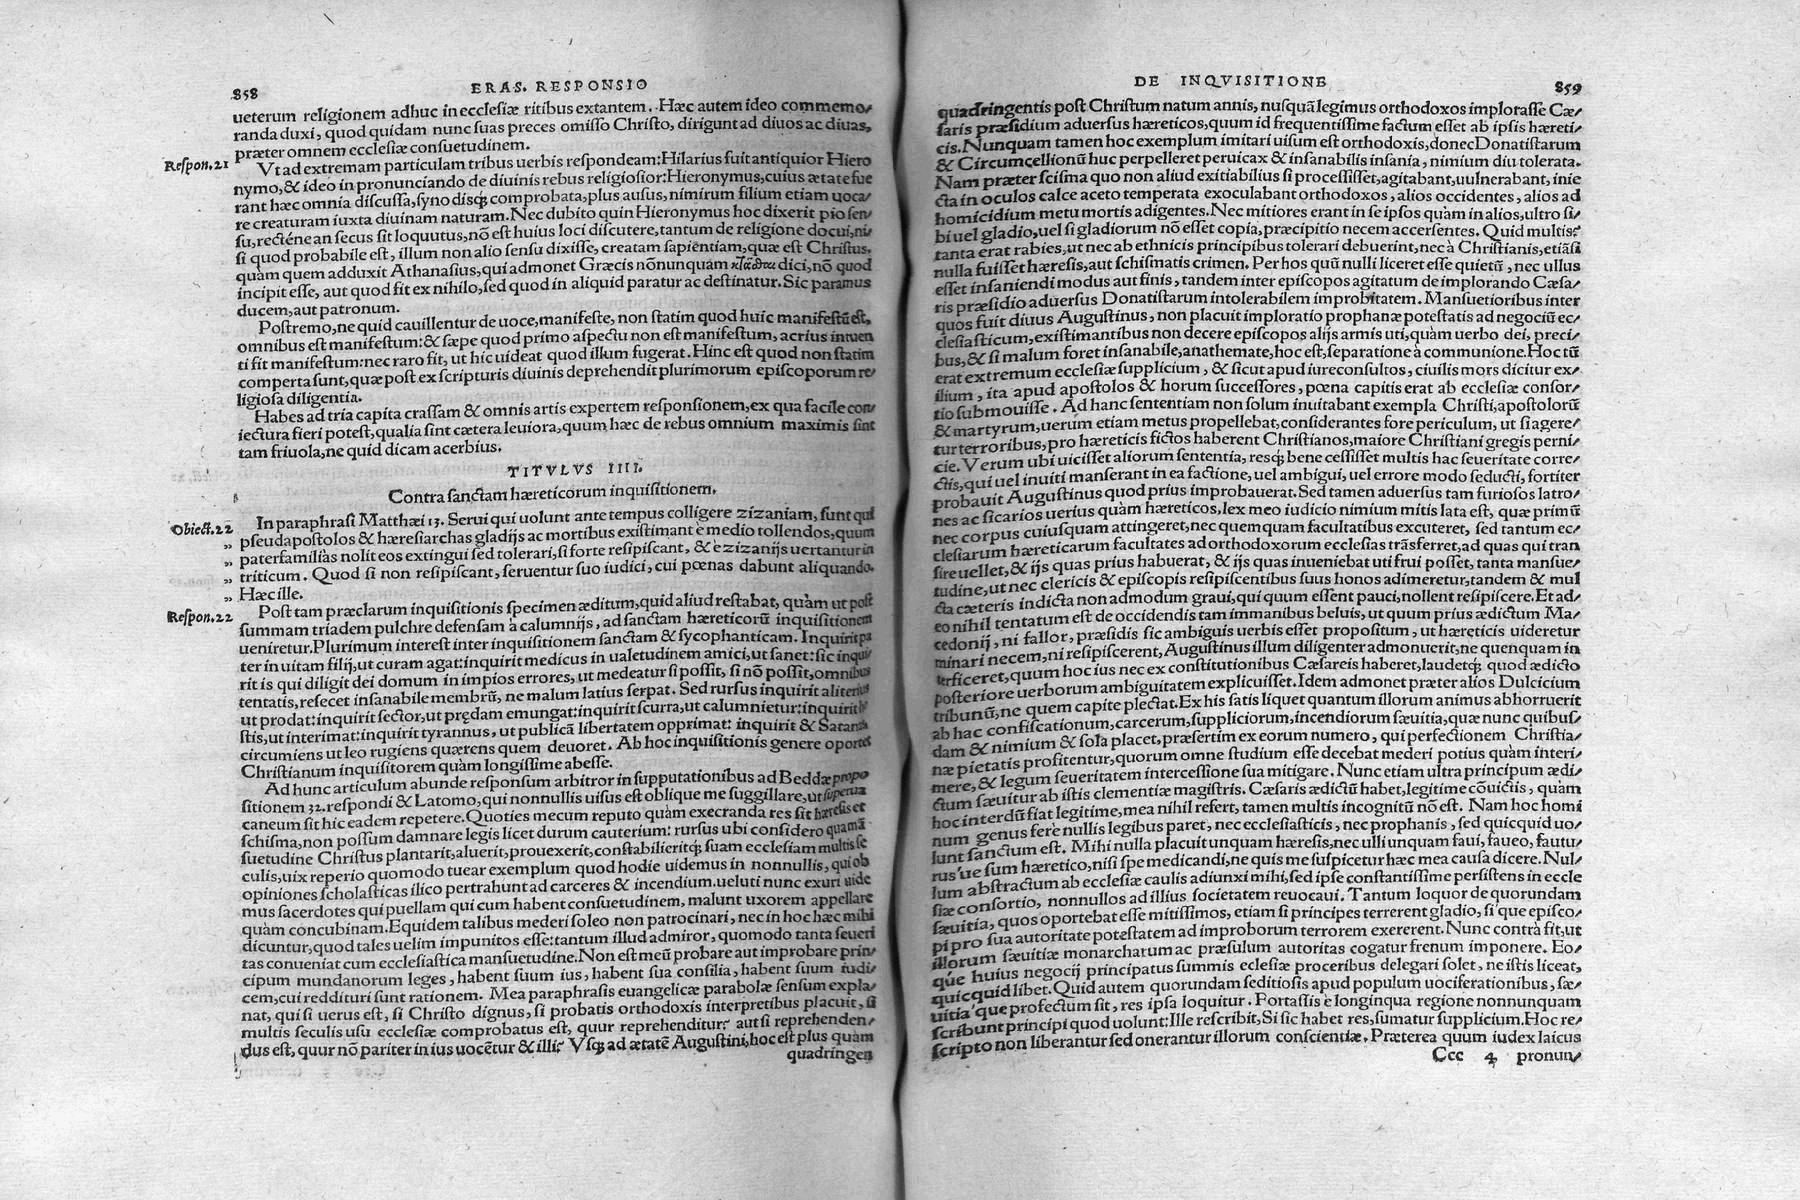 858 ERAS. RESPONSIO
ueterum religionem adhuc in ecclesiæ ritibus extantem. Hæc autem ideo commemo/
randa duxi, quod quidam nunc suas preces omisso Christo, dirigunt ad diuos ac diuas,
præter omnem ecclesiæ consuetudinem.
Respon.21 Vt ad extremam particulam tribus uerbis respondeam: Hilarius fuit antiquior Hiero
nymo, & ideo in pronunciando de diuinis rebus religiosior: Hieronymus, cuius ætate fue
rant hæc omnia discussa, synodisq́ comprobata, plus ausus, nimirum filium etiam uoca/
re creaturam iuxta diuinam naturam. Nec dubito quin Hieronymus hoc dixerit pio sen/
su, recténe an secus sit loquutus, nõ est huius loci discutere, tantum de religione docui, ni/
si quod probabile est, illum non alio sensu dixisse, creatam sapientiam, quæ est Christus,
quàm quem adduxit Athanasius, qui admonet Græcis nõnunquam κτᾶσθαι dici, nõ quod
incipit esse, aut quod fit ex nihilo, sed quod in aliquid paratur ac destinatur. Sic paramus
ducem, aut patronum.
Postremo, ne quid cauillentur de uoce, manifeste, non statim quod huic manifestũ est,
omnibus est manifestum: & sæpe quod primo aspectu non est manifestum, acrius intuen
ti fit manifestum: nec raro fit, ut hic uideat quod illum fugerat. Hinc est quod non statim
comperta sunt, quæ post ex scripturis diuinis deprehendit plurimorum episcoporum re/
ligiosa diligentia.
Habes ad tria capita crassam & omnis artis expertem responsionem, ex qua facile con/
iectura fieri potest, qualia sint cætera leuiora, quum hæc de rebus omnium maximis sint
tam friuola, ne quid dicam acerbius.
TITVLVS IIII.
Contra sanctam hæreticorum inquisitionem.
Obiect.22 In paraphrasi Matthæi 13. Serui qui uolunt ante tempus colligere zizaniam, sunt qui
„ pseudapostolos & hæresiarchas gladijs ac mortibus existimant è medio tollendos, quum
„ paterfamiliâs nolit eos extingui sed tolerari, si forte resipiscant, & è zizanijs uertantur in
„ triticum. Quod si non resipiscant, seruentur suo iudici, cui pœnas dabunt aliquando.
„ Hæc ille.
Respon.22 Post tam præclarum inquisitionis specimen æditum, quid aliud restabat, quàm ut post
summam triadem pulchre defensam à calumnijs, ad sanctam hæreticorũ inquisitionem
ueniretur. Plurimum interest inter inquisitionem sanctam & sycophanticam. Inquirit pa
ter in uitam filij, ut curam agat: inquirit medicus in ualetudinem amici, ut sanet: sic inqui/
rit is qui diligit dei domum in impios errores, ut medeatur si possit, si nõ possit, omnibus
tentatis, resecet insanabile membrũ, ne malum latius serpat. Sed rursus inquirit aliterius
ut prodat: inquirit sector, ut prędam emungat: inquirit scurra, ut calumnietur: inquirit
stis, ut interimat: inquirit tyrannus, ut publicã libertatem opprimat: inquirit & Satanas
circumiens ut leo rugiens quærens quem deuoret. Ab hoc inquisitionis genere oportet
Christianum inquisitorem quàm longissime abesse.
Ad hunc articulum abunde responsum arbitror in supputationibus ad Beddæ propo
sitionem 32. respondi & Latomo, qui nonnullis uisus est oblique me suggillare, ut superua
caneum sit hic eadem repetere. Quoties mecum reputo quàm execranda res sit hæresis et
schisma, non possum damnare legis licet durum cauterium: rursus ubi considero quamã
suetudine Christus plantarit, aluerit, prouexerit, constabilieritq́ suam ecclesiam multis se
culis, uix reperio quomodo tuear exemplum quod hodie uidemus in nonnullis, qui ob
opiniones scholasticas ilico pertrahunt ad carceres & incendium. ueluti nunc exuri uide
mus sacerdotes qui puellam qui cum habent consuetudinem, malunt uxorem appellare
quàm concubinam. Equidem talibus mederi soleo non patrocinari, nec in hoc hæc mihi
dicuntur, quod tales uelim impunitos esse: tantum illud admiror, quomodo tanta seueri
tas conueniat cum ecclesiastica mansuetudine. Non est meũ probare aut improbare prin/
cipum mundanorum leges, habent suum ius, habent sua consilia, habent suum iudi/
cem, cui reddituri sunt rationem. Mea paraphrasis euangelicæ parabolæ sensum expla/
nat, qui si uerus est, si Christo dignus, si probatis orthodoxis interpretibus placuit, si
multis seculis usu ecclesiæ comprobatus est, quur reprehenditur? aut si reprehenden/
dus est, quur nõ pariter in ius uocẽtur & illi? Vsq́ ad ætatẽ Augustini, hoc est plus quàm
quadringen
DE INQVISITIONE 859
quadringentis post Christum natum annis, nusquã legimus orthodoxos implorasse Cæ/
saris præsidium aduersus hæreticos, quum id frequentissime factum esset ab ipsis hæreti/
cis. Nunquam tamen hoc exemplum imitari uisum est orthodoxis, donec Donatistarum
& Circumcellionũ huc perpelleret peruicax & insanabilis insania, nimium diu tolerata.
Nam præter scisma quo non aliud exitiabilius si processisset, agitabant, uulnerabant, inie
cta in oculos calce aceto temperata exoculabant orthodoxos, alios occidentes, alios ad
homicidium metu mortis adigentes. Nec mitiores erant in se ipsos quàm in alios, ultro si/
bi uel gladio, uel si gladiorum nõ esset copia, præcipitio necem accersentes. Quid multis?
tanta erat rabies, ut nec ab ethnicis principibus tolerari debuerint, nec à Christianis, etiãsi
nulla fuisset hæresis, aut schismatis crimen. Per hos quũ nulli liceret esse quietũ, nec ullus
esset insaniendi modus aut finis, tandem inter episcopos agitatum de implorando Cæsa/
ris præsidio aduersus Donatistarum intolerabilem improbitatem. Mansuetioribus inter
quos fuit diuus Augustinus, non placuit imploratio prophanæ potestatis ad negociũ ec/
clesiasticum, existimantibus non decere episcopos alijs armis uti, quàm uerbo dei, preci/
bus, & si malum foret insanabile, anathemate, hoc est, separatione à communione. Hoc tũ
erat extremum ecclesiæ supplicium, & sicut apud iureconsultos, ciuilis mors dicitur ex/
ilium, ita apud apostolos & horum successores, pœna capitis erat ab ecclesiæ consor/
tio submouisse. Ad hanc sententiam non solum inuitabant exempla Christi, apostolorũ
& martyrum, uerum etiam metus propellebat, considerantes fore periculum, ut si agere/
tur terroribus, pro hæreticis fictos haberent Christianos, maiore Christiani gregis perni/
cie. Verum ubi uicisset aliorum sententia, resq́ bene cessisset multis hac seueritate corre/
ctis, qui uel inuiti manserant in ea factione, uel ambigui, uel errore modo seducti, fortiter
probauit Augustinus quod prius improbauerat. Sed tamen aduersus tam furiosos latro/
nes ac sicarios uerius quàm hæreticos, lex meo iudicio nimium mitis lata est, quæ primũ
nec corpus cuiusquam attingeret, nec quemquam facultatibus excuteret, sed tantum ec/
clesiarum hæreticarum facultates ad orthodoxorum ecclesias trãsferret, ad quas qui tran
sire uellet, & ijs quas prius habuerat, & ijs quas inueniebat uti frui posset, tanta mansue/
tudine, ut nec clericis & episcopis resipiscentibus suus honos adimeretur, tandem & mul
cta cæteris indicta non admodum graui, qui quum essent pauci, nollent resipiscere. Et ad/
eo nihil tentatum est de occidendis tam immanibus beluis, ut quum prius ædictum Ma/
cedonij, ni fallor, præsidis sic ambiguis uerbis esset propositum, ut hæreticis uideretur
minari necem, ni resipiscerent, Augustinus illum diligenter admonuerit, ne quenquam in
terficeret, quum hoc ius nec ex constitutionibus Cæsareis haberet, laudetq́ quod ædicto
posteriore uerborum ambiguitatem explicuisset. Idem admonet præter alios Dulcicium
tribunũ, ne quem capite plectat. Ex his satis liquet quantum illorum animus abhorruerit
ab hac confiscationum, carcerum, suppliciorum, incendiorum sæuitia, quæ nunc quibus/
dam & nimium & sola placet, præsertim ex eorum numero, qui perfectionem Christia/
næ pietatis profitentur, quorum omne studium esse decebat mederi potius quàm interi/
mere, & legum seueritatem intercessione sua mitigare. Nunc etiam ultra principum ædi/
ctum sæuitur ab istis clementiæ magistris. Cæsaris ædictũ habet, legitime cõuictis, quàm
hoc interdũ fiat legitime, mea nihil refert, tamen multis incognitũ nõ est. Nam hoc homi
num genus ferè nullis legibus paret, nec ecclesiasticis, nec prophanis, sed quicquid uo/
lunt sanctum est. Mihi nulla placuit unquam hæresis, nec ulli unquam faui, faueo, fautu/
rus'ue sum hæretico, nisi spe medicandi, ne quis me suspicetur hæc mea causa dicere. Nul/
lum abstractum ab ecclesiæ caulis adiunxi mihi, sed ipse constantissime persistens in eccle
siæ consortio, nonnullos ad illius societatem reuocaui. Tantum loquor de quorundam
sæuitia, quos oportebat esse mitissimos, etiam si principes terrerent gladio, si'que episco/
pi pro sua autoritate potestatem ad improborum terrorem exererent. Nunc contrà fit, ut
illorum sæuitiæ monarcharum ac præsulum autoritas cogatur frenum imponere. Eo/
que huius negocij principatus summis eclesiæ proceribus delegari solet, ne istis liceat,
quicquid libet. Quid autem quorundam seditiosis apud populum uociferationibus, sæ/
uitia'que profectum sit, res ipsa loquitur. Fortassis è longinqua regione nonnunquam
scribunt principi quod uolunt: Ille rescribit, Si sic habet res, sumatur supplicium. Hoc re/
scripto non liberantur sed onerantur illorum conscientiæ. Præterea quum iudex laicus
Ccc 4 pronun/